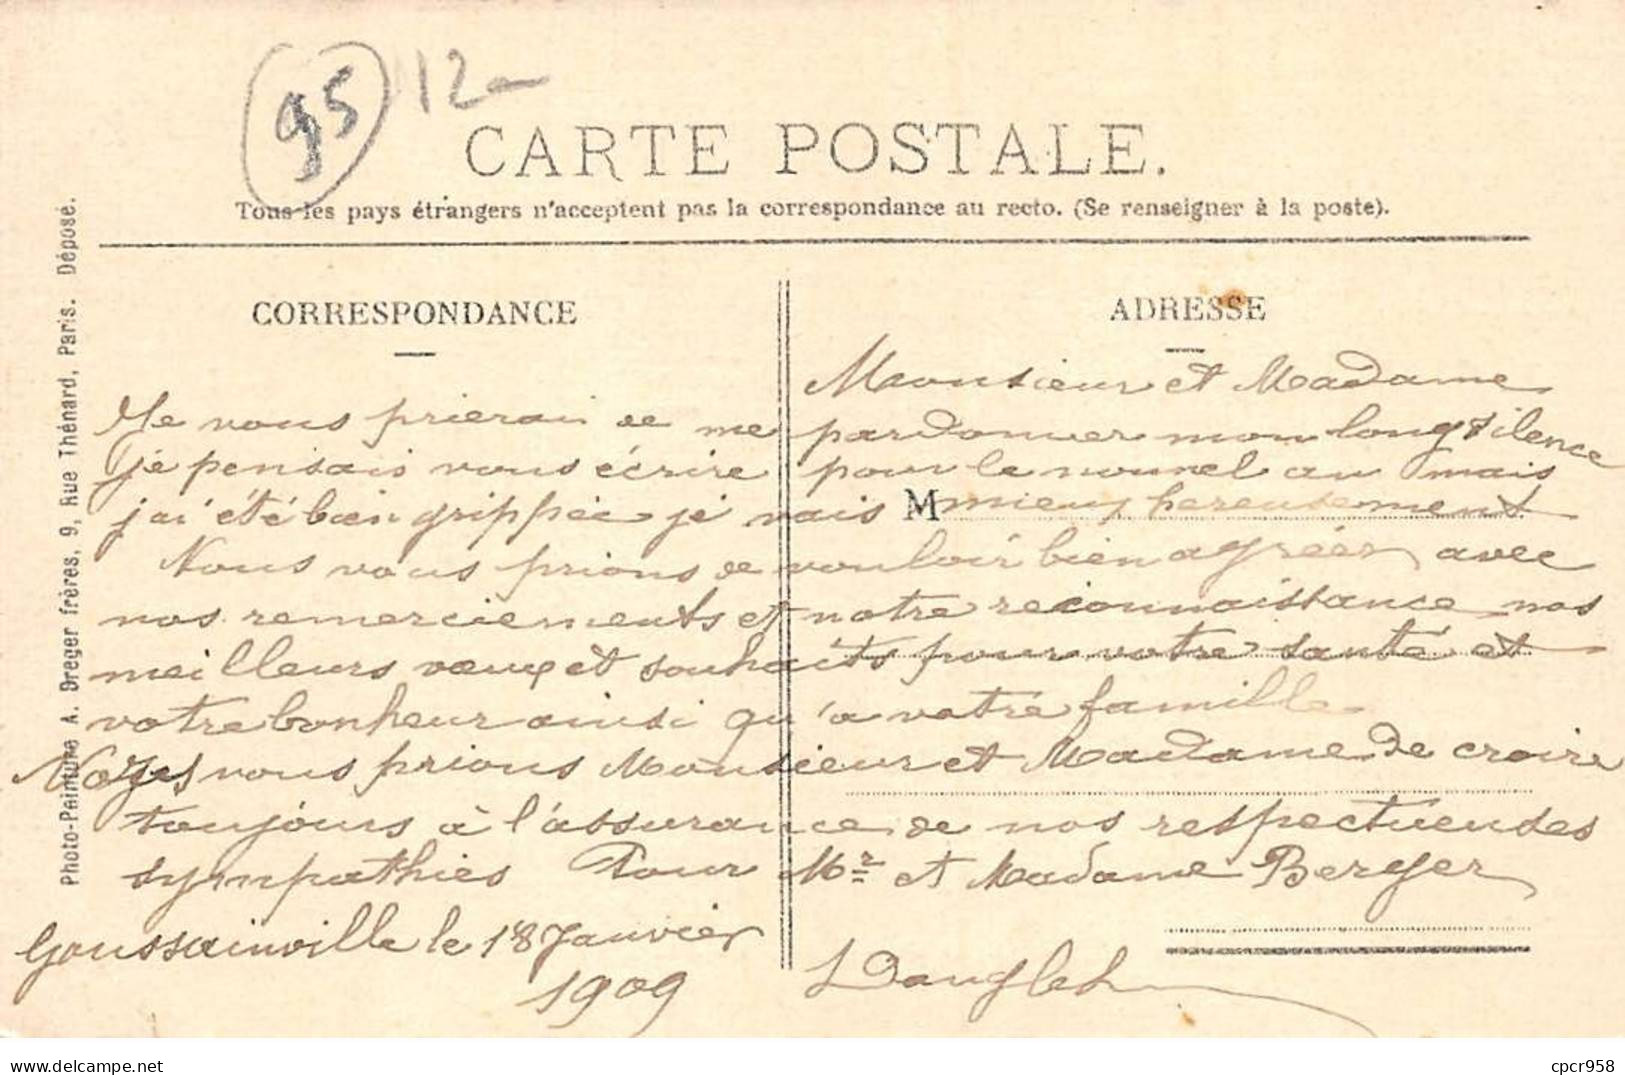 95 12
CARTE POSTALE.
Tous les pays étrangers n'acceptent pas la correspondance au recto. (Se renseigner à la poste).
CORRESPONDANCE
ADRESSE
Monsieur et Madame
Je vous prierai de me pardonner mon long silence
je pensais vous écrire pour le nouvel an mais
j'ai été bien grippée je vais M mieux hereusement
Nous vous prions de vouloir bien agréer avec
nos remerciements et notre reconnaissance nos
meilleurs vœux et souhaits pour votre santé et
votre bonheur ainsi qu'a votre famille
vous prions Monsieur et Madame de croire
toujours à l'assurance de nos respectueuses
sympathies Pour Mr et Madame Berger
Goussainville le 18 Janvier
1909
Photo-Peinture A. Breger frères, 9, Rue Thénard, Paris. Déposé.
cpcr958